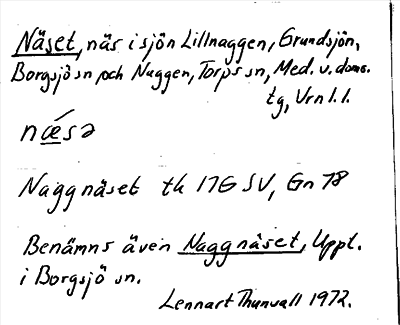 Näset, näs i sjön Lillnaggen, Grundsjön,
Borgsjö sn och Naggen, Torps sn, Med. v. doms.
tg, Vrn l. l.
nǽsə
Naggnäset tk 17G SV, Gn 78
Benämns även Naggnäset, Uppl.
i Borgsjö sn.
Lennart Thunvall 1972.